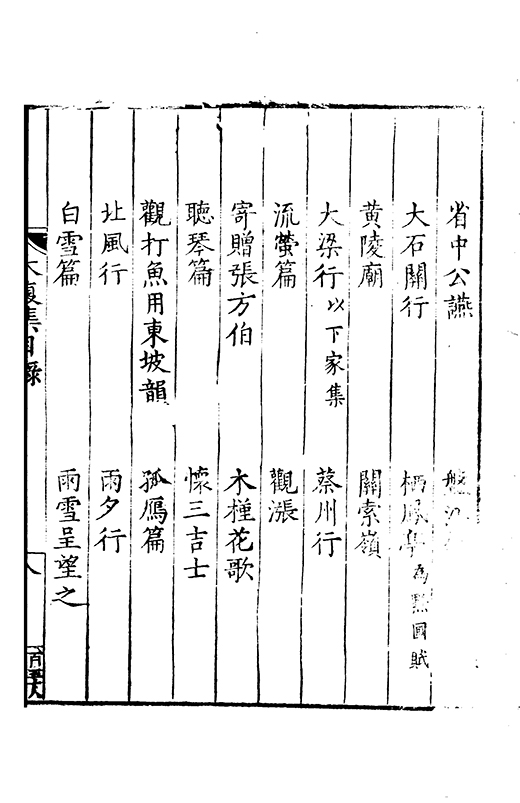 省中公讌 盤
大石關行 栖鳳 為黔國賦
黃陵廟 關索嶺
大梁行 以下家集 蔡州行
流螢篇 觀漲
寄贈張方伯 木槿花歌
聽琴篇 懷三吉士
觀打魚用東坡韻 孤鴈篇
北風行 雨夕行
白雪篇 雨雪呈望之
大復集目錄 八